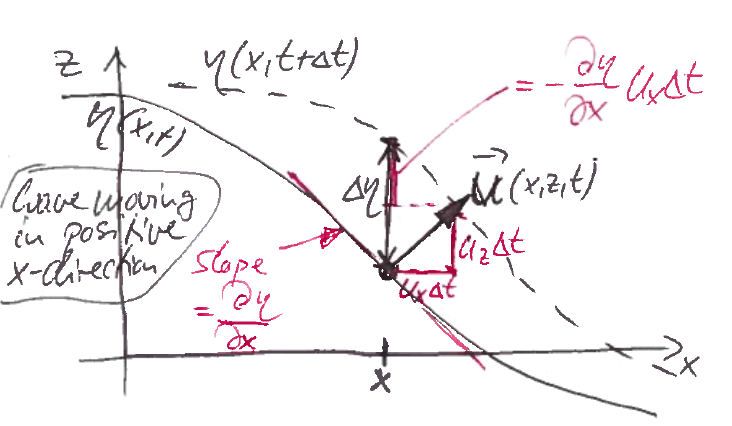 z
η(x,t+Δt)
= -∂η/∂x uₓΔt
η(x,t)
Δη
u⃗(x,z,t)
wave moving
in positive
x-direction
u_zΔt
slope
= ∂η/∂x
uₓΔt
x
x